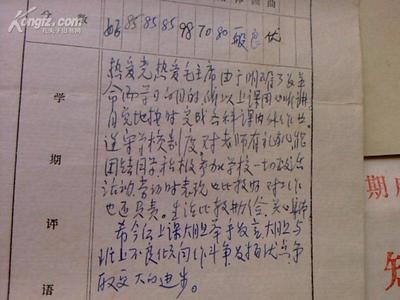 Kongfz.com
分 数
好 85 85 85 98 70 80 一般 良 优
学期评语
热爱党热爱毛主席由于明确了为革
命而学习的目的所以上课用心听讲
自觉地按时完成各科课内外作业
遵守学校制度对老师有礼貌能
团结同学积极参加学校一切政治
活动劳动时表现也比较好对工作
也还负责。生活比较勤俭、关心集体
希今后上课大胆举手发言大胆与
班上不良倾向作斗争发扬优点争
取更大的进步。
期